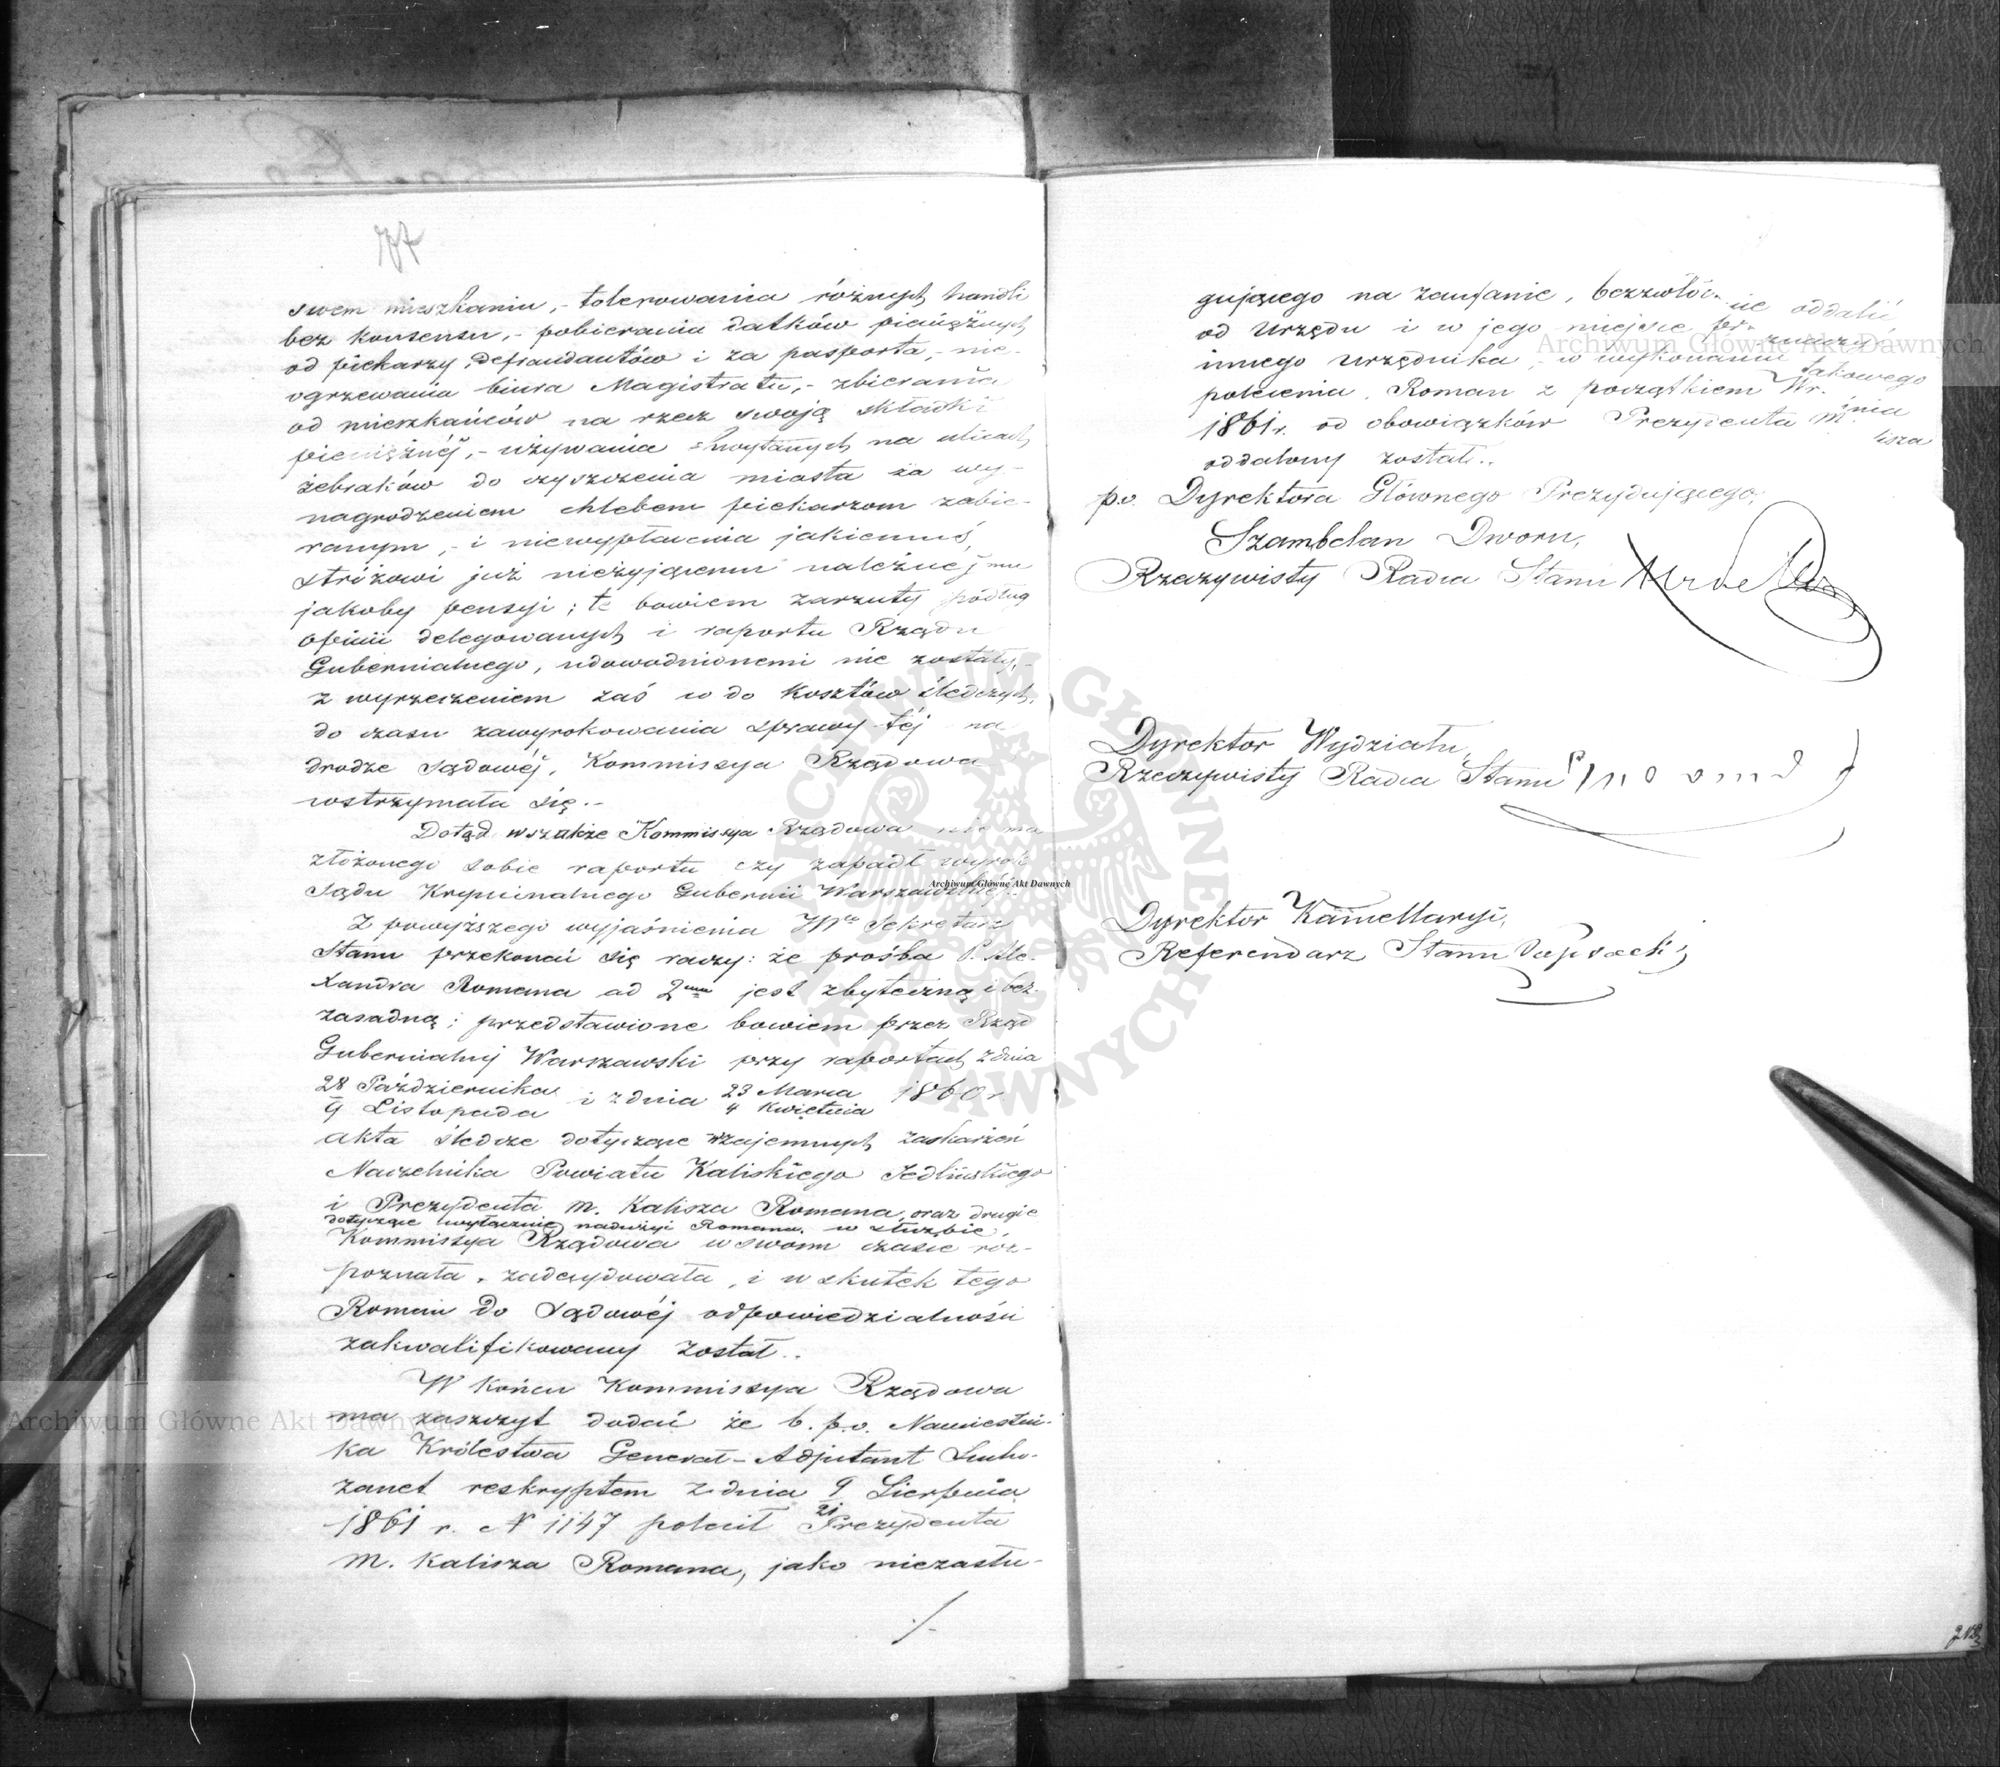 77
swem mieszkaniu, - tolerowania różnych handli
bez konsensu, - pobierania datków pieniężnych
od piekarzy, defraudantów i za pasporta, - nie-
ogrzewania biura Magistratu, - zbierania
od mieszkańców na rzecz swoją składki
pieniężnéj, - używania schwytanych na ulicach
żebraków do czyszczenia miasta za wy-
nagrodzeniem chlebem piekarzom zabie-
ranym, - i niewypłacenia jakiemuś,
stróżowi już nieżyjącemu należnéj mu
jakoby pensyi; te bowiem zarzuty podług
opinii delegowanych i raportu Rządu
Gubernialnego, udowodnionemi nie zostały, -
z wyrzeczeniem zaś co do kosztów śledczych,
do czasu zawyrokowania sprawy téj na
drodze sądowéj, Kommissya Rządowa
wstrzymała się. -
Dotąd wszakże Kommissya Rządowa nie ma
złożonego sobie raportu czy zapadł wyrok
Sądu Kryminalnego Gubernii Warszawskiéj.
Z powyższego wyjaśnienia JW Sekretarz
Stanu przekonać się raczy: że prośba P. Ale-
xandra Romana ad 2 jest zbyteczną i bez-
zasadną; przedstawione bowiem przez Rząd
Gubernialny Warszawski przy raportach z dnia
28 Października / 9 Listopada i z dnia 23 Marca / 4 Kwietnia 1860 r.
akta śledcze dotyczące wzajemnych zaskarżeń
Naczelnika Powiatu Kaliskiego Jedlińskiego
i Prezydenta m. Kalisza Romana, oraz drugie
dotyczące wyłącznie nadużyć Romana w służbie,
Kommissya Rządowa w swoim czasie roz-
poznała, zadecydowała, i w skutek tego
Roman do sądowéj odpowiedzialności
zakwalifikowany został. -
W końcu Kommissya Rządowa
ma zaszczyt dodać że b. p.o. Namiestni-
ka Królestwa Generał-Adjutant Sucho-
zanet reskryptem z dnia 9/21 Sierpnia
1861 r. N 1147 polecił Prezydenta
m. Kalisza Romana, jako niezasłu-
./.
gującego na zaufanie, bezzwłócznie oddalić
od Urzędu i w jego miejsce
innego urzędnika, w wykonaniu takowego
polecenia, Roman z początkiem Września
1861 r. od obowiązków Prezydenta m. Kalisza
oddalony został. -
p.o. Dyrektora Głównego Prezydującego,
Szambelan Dworu,
Rzeczywisty Radca Stanu
Dyrektor Wydziału,
Rzeczywisty Radca Stanu
Dyrektor Kancellaryi,
Referendarz Stanu
Archiwum Główne Akt Dawnych
Archiwum Główne Akt Dawnych
Archiwum Główne Akt Dawnych
ARCHIWUM GŁÓWNE AKT DAWNYCH